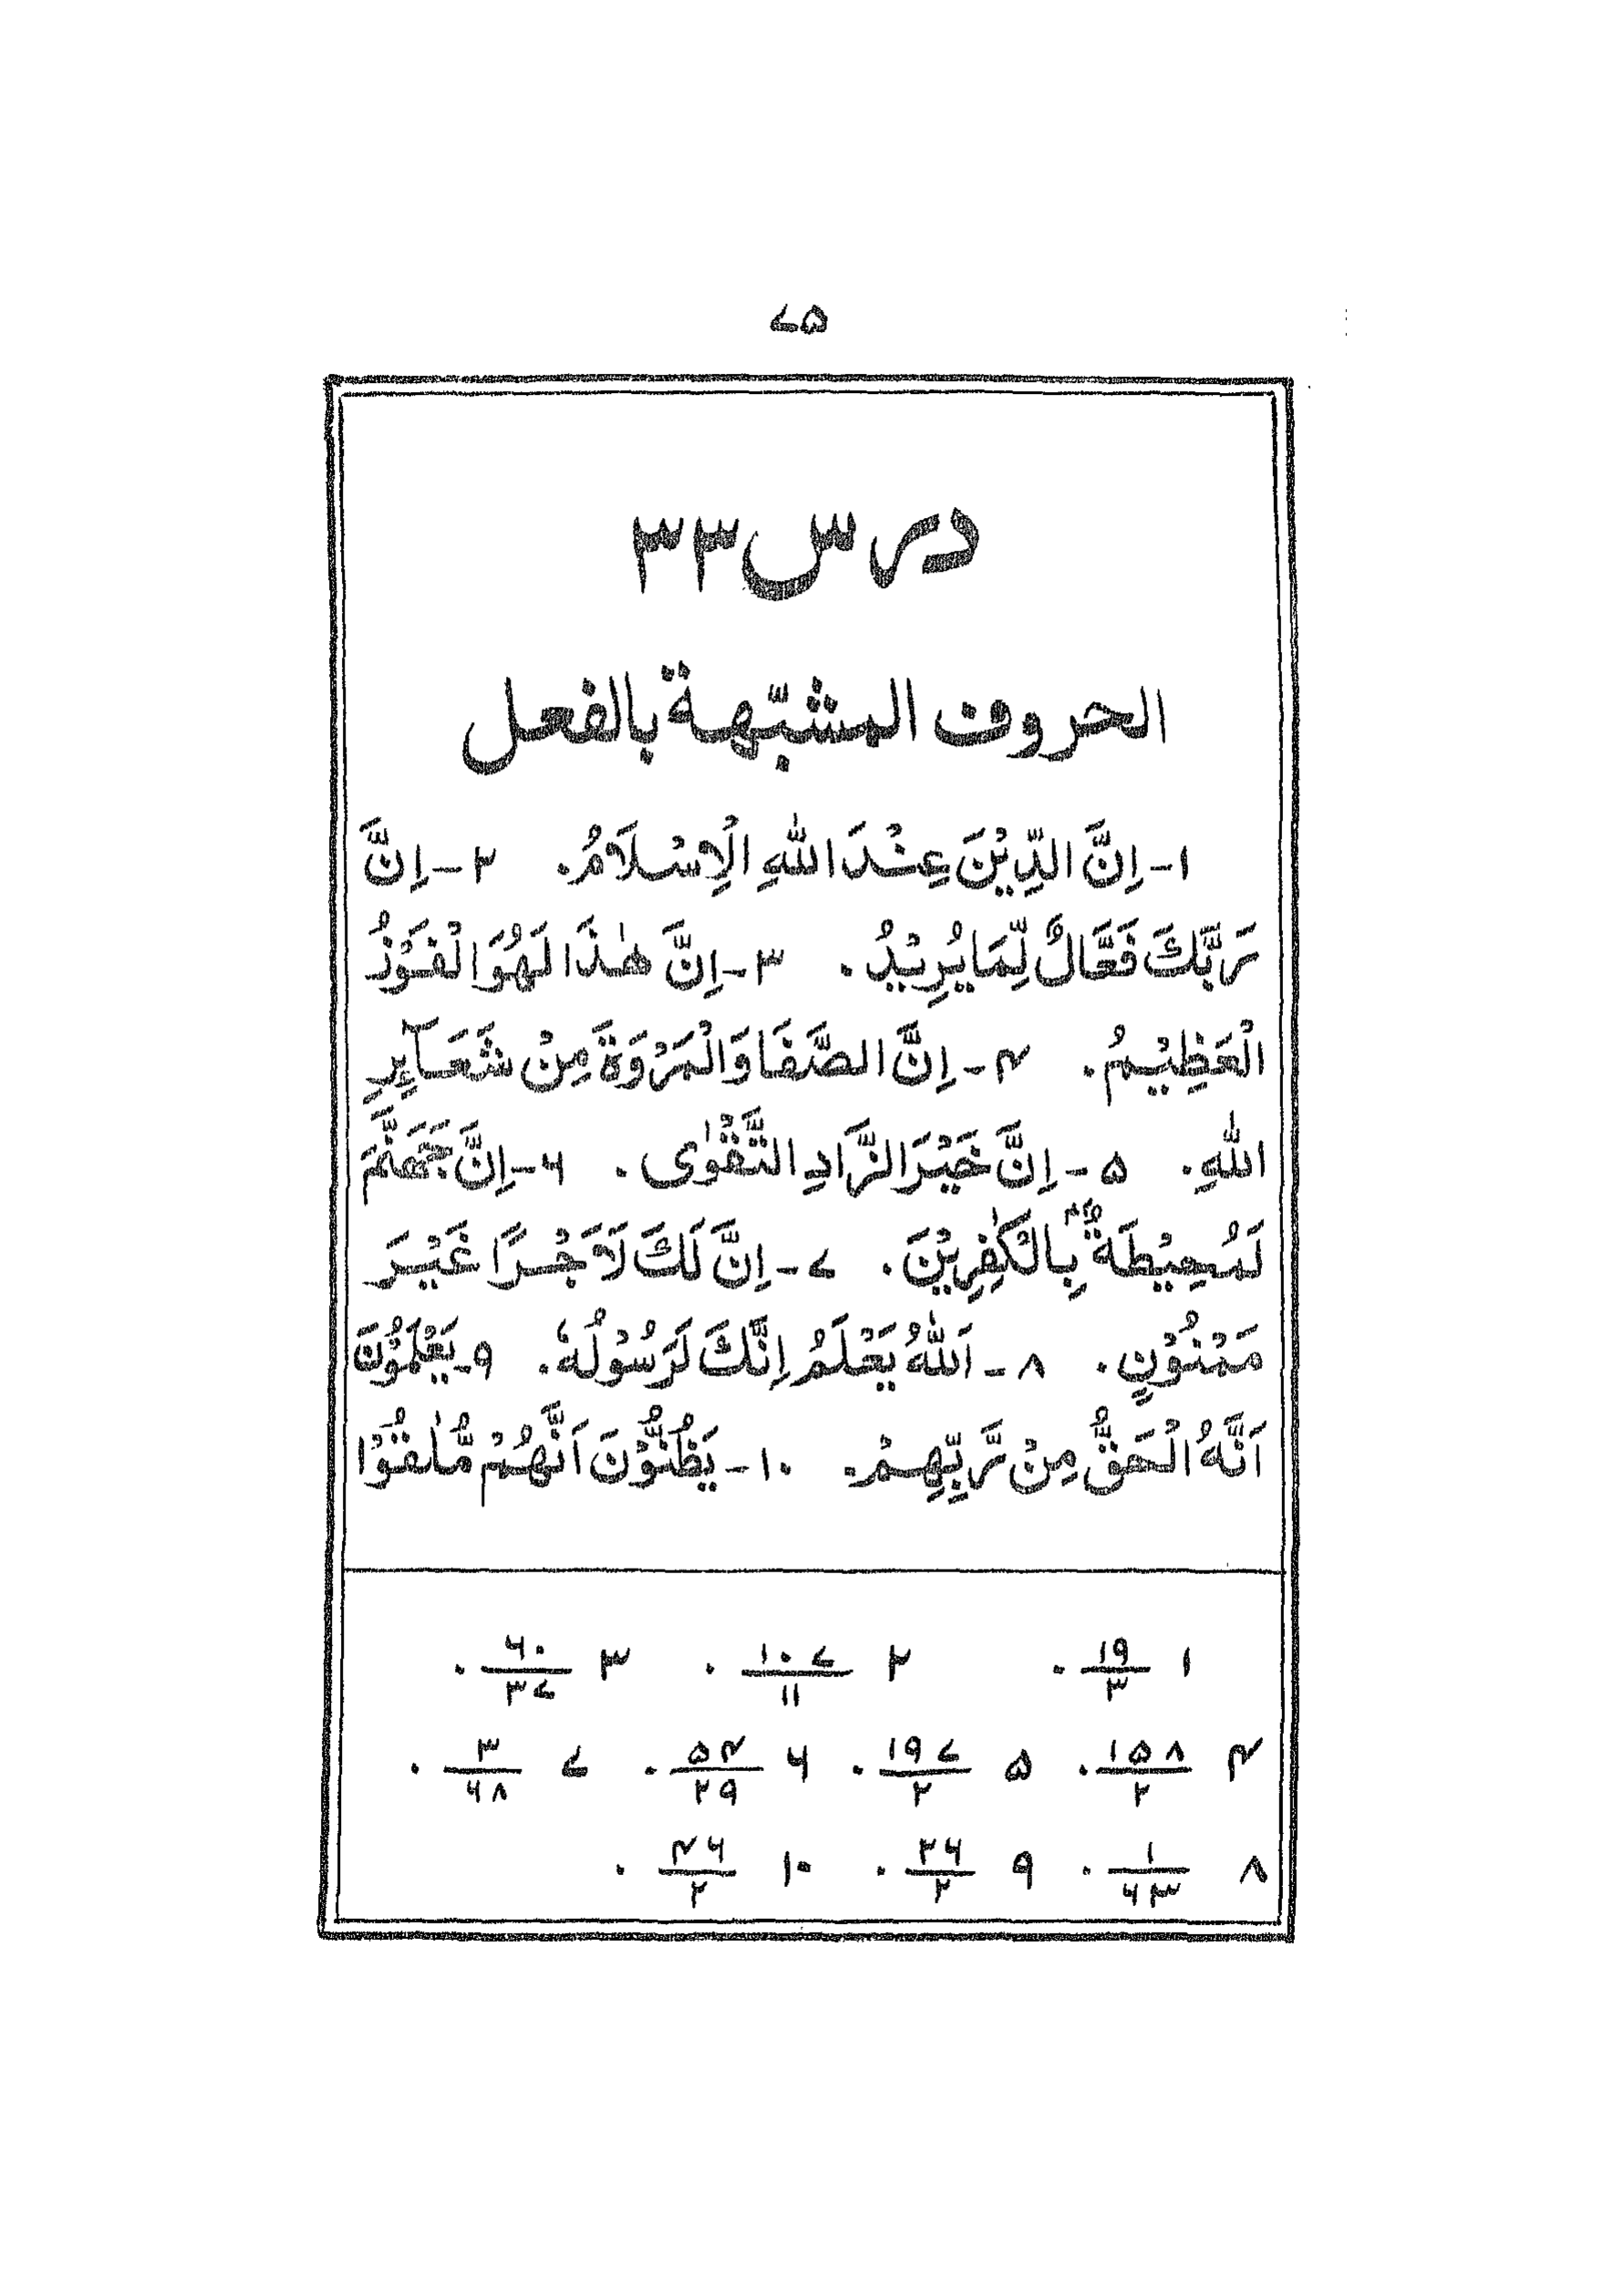 ۷۵
درس ۳۳
الحروف المشبّهة بالفعل
۱- اِنَّ الدِّیْنَ عِنْدَ اللّٰهِ الْاِسْلَامُ۔ ۲- اِنَّ
رَبَّكَ فَعَّالٌ لِّمَا یُرِیْدُ۔ ۳- اِنَّ هٰذَا لَهُوَ الْفَوْزُ
الْعَظِیْمُ۔ ۴- اِنَّ الصَّفَا وَالْمَرْوَةَ مِنْ شَعَآئِرِ
اللّٰهِ۔ ۵- اِنَّ خَیْرَ الزَّادِ التَّقْوٰی۔ ۶- اِنَّ جَهَنَّمَ
لَمُحِیْطَةٌۢ بِالْكٰفِرِیْنَ۔ ۷- اِنَّ لَكَ لَاَجْرًا غَیْرَ
مَمْنُوْنٍ۔ ۸- اَللّٰهُ یَعْلَمُ اِنَّكَ لَرَسُوْلُهٗ۔ ۹- یَعْلَمُوْنَ
اَنَّهُ الْحَقُّ مِنْ رَّبِّهِمْ۔ ۱۰- یَظُنُّوْنَ اَنَّهُمْ مُّلٰقُوْا
۱ ۱۹/۳ ۔ ۲ ۱۰۷/۱۱ ۔ ۳ ۶۰/۳۷ ۔
۴ ۱۵۸/۲ ۔ ۵ ۱۹۷/۲ ۔ ۶ ۵۴/۲۹ ۔ ۷ ۳/۶۸ ۔
۸ ۱/۶۳ ۔ ۹ ۲۶/۲ ۔ ۱۰ ۴۶/۲ ۔